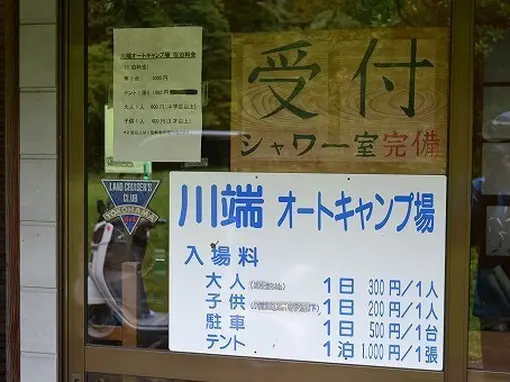 川端オートキャンプ場 宿泊料金
車1台 1000円
テント1張り
大人1人 600円(中学生以上)
子供1人 400円
受付
シャワー室完備
LAND CRUISER'S
CLUB
YOKOHAMA
川端 オートキャンプ場
入場料
大人 1日 300円/1人
子供 1日 200円/1人
駐車 1日 500円/1台
テント 1泊 1.000円/1張